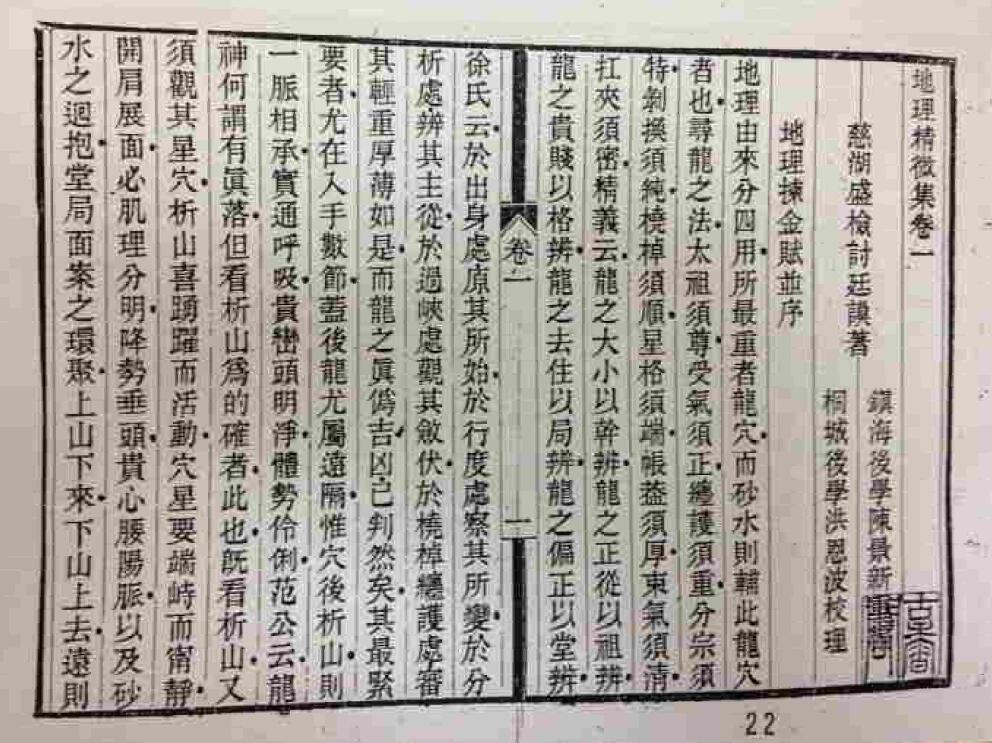 地理精微集卷一
慈湖盛檢討廷謨著
鎮海後學陳景新
桐城後學洪恩波校理
地理揀金賦並序
地理由來分四用所最重者龍穴而砂水則輔此龍穴
者也尋龍之法太祖須尊受氣須正纏護須重分宗須
特剝換須純橈棹須順星格須端帳葢須厚束氣須清
扛夾須密精義云龍之大小以幹辨龍之正從以祖辨
龍之貴賤以格辨龍之去住以局辨龍之偏正以堂辨
卷一
一
徐氏云於出身處原其所始於行度處察其所變於分
析處辨其主從於過峽處觀其斂伏於橈棹纏護處審
其輕重厚薄如是而龍之眞偽吉凶已判然矣其最緊
要者尤在入手數節蓋後龍尤屬遠隔惟穴後析山則
一脈相承實通呼吸貴巒頭明淨體勢伶俐范公云龍
神何謂有眞落但看析山爲的確者此也旣看析山又
須觀其星穴析山喜踴躍而活動穴星要端峙而甯靜
開肩展面必肌理分明降勢垂頭貴心腰陽脈以及砂
水之迴抱堂局面案之環聚上山下來下山上去遠則
22